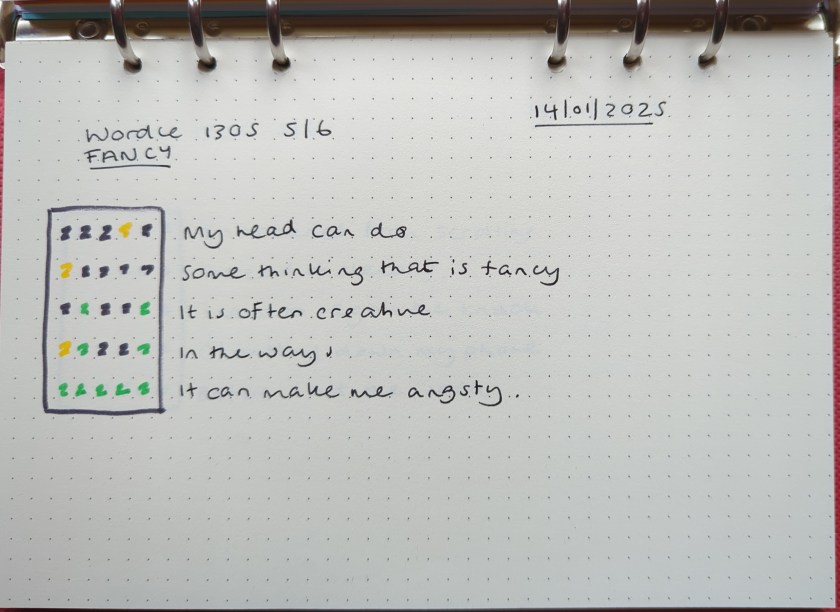 14/01/2025
Wordle 1305 5/6
FANCY
My head can do
Some thinking that is fancy
It is often creative
In the ways
It can make me angsty.